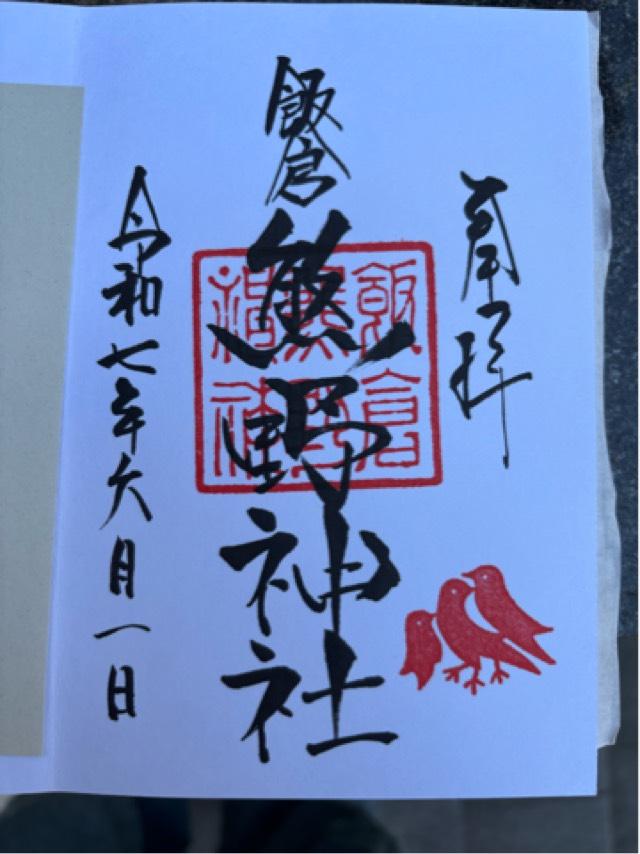 奉拝
飯倉
熊野神社
飯倉
熊野
神社
令和七年六月一日